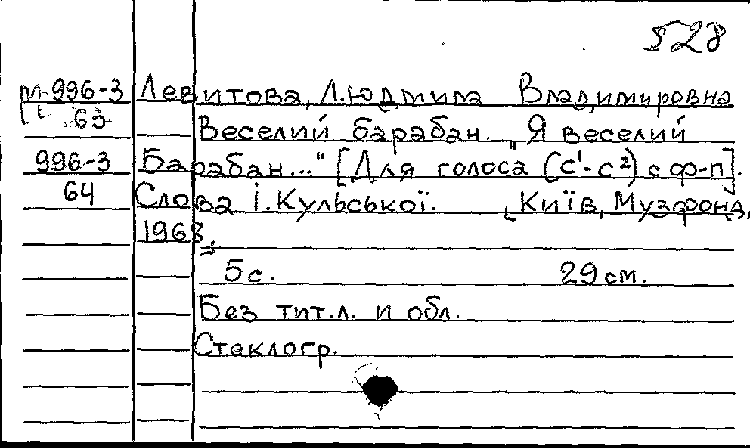 528
М 996-3 Левитова, Людмила Владимировна
63
Веселий барабан. "Я веселий
996-3 Барабан..." [Для голоса (c¹-c²) с ф-п].
64 Слова І. Кульської. Київ, Музфонд,
1968.
5 с. 29 см.
Без тит.л. и обл.
Стеклогр.